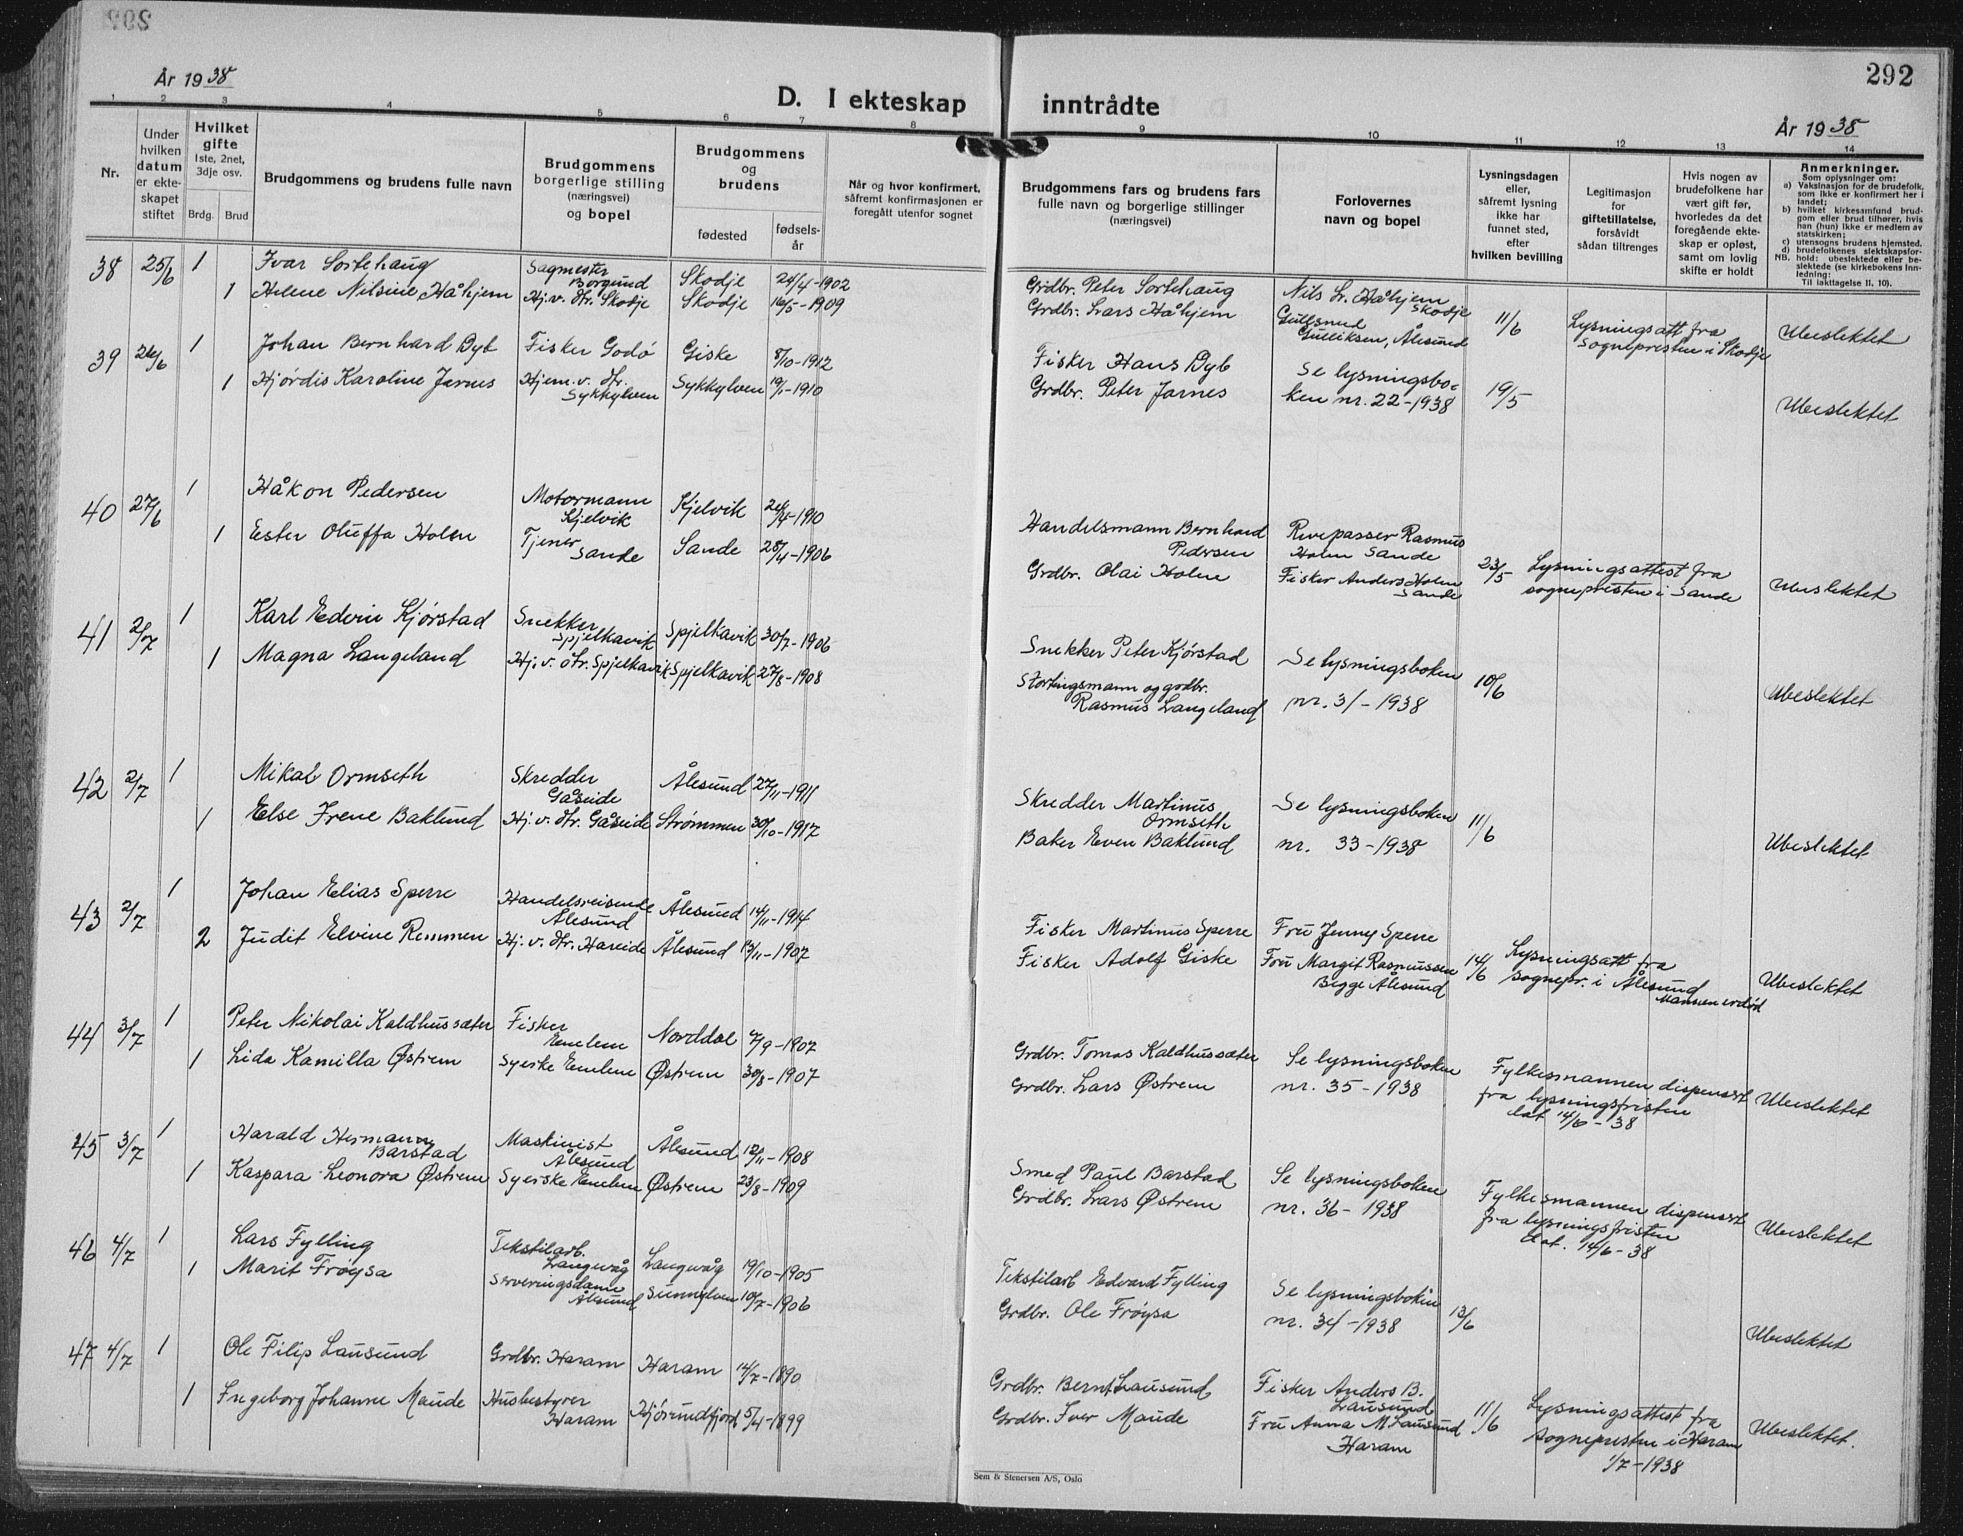 År 1938
D. I ekteskap inntrådte
292
År 1938
1 2 3 4 5 6 7 8 9 10 11 12 13 14
Nr.
Under hvilken datum er ekteskapet stiftet
Hvilket gifte 1ste, 2net, 3dje osv.
Brdg. Brud
Brudgommens og brudens fulle navn
Brudgommens borgerlige stilling (næringsvei) og bopel
Brudgommens og brudens
fødested
fødsels-år
Når og hvor konfirmert, såfremt konfirmasjonen er foregått utenfor sognet
Brudgommens fars og brudens fars fulle navn og borgerlige stillinger (næringsvei)
Forlovernes navn og bopel
Lysningsdagen eller, såfremt lysning ikke har funnet sted, efter hvilken bevilling
Legitimasjon for giftetillatelse, forsåvidt sådan tiltrenges
Hvis nogen av brudefolkene har vært gift før, hvorledes da det foregående ekteskap er opløst, samt om lovlig skifte er holdt
Anmerkninger.
Som oplysninger om:
a) Vaksinasjon for de brudefolk, som ikke er konfirmert her i landet;
b) hvilket kirkesamfund brudgom eller brud tilhører, hvis han (hun) ikke er medlem av statskirken;
c) utensogns brudens hjemsted.
d) brudefolkenes slektskapsforhold: ubeslektede eller beslektede (se kirkebokens innledning:
NB.
Til iakttagelse II. 10).
38 25/6 1 Ivar Sortehaug Sagmester Borgund Skodje 24/4-1902 Grdbr. Peter Sortehaug Nils L. Håhjem Skodje
1 Helene Nilsine Håhjem Hj.v. fr. Skodje Skodje 16/5-1909 Grdbr. Lars Håhjem Gullsnud Gulliksen, Ålesund 11/6 Lysningsatt fra sognepresten i Skodje Ubeslektet
39 26/6 1 Johan Bernhard Dyb Fisker Godö Giske 8/10-1912 Fisker Hans Dyb Se lysningsbo-
1 Hjördis Karoline Jarnes Hjem. v. fr. Sykkylven Sykkylven 19/1-1910 Grdbr. Peter Jarnes ken nr. 22-1938 19/5 Ubeslektet
40 27/6 1 Håkon Pedersen Motormann Kjelvik Kjelvik 24/4-1910 Handelsmann Bernhard Pedersen Revepasser Rasmus Holm Sande
1 Ester Oluffa Holen Tjener Sande Sande 28/4-1906 Grdbr. Olai Holen Fisker Anders Holen Sande 23/5 Lysningsattest fra sognepresten i Sande Ubeslektet
41 2/7 1 Karl Edvin Kjørstad Snekker Spjelkavik Spjelkavik 30/7-1906 Snekker Peter Kjørstad Se lysningsboken
1 Magna Langeland Hj. v. fr. Spjelkavik Spjelkavik 27/8-1908 Stortingsmann og grdbr. Rasmus Langeland nr. 31-1938 10/6 Ubeslektet
42 2/7 1 Mikal Ormseth Skredder Gåseide Ålesund 27/11-1911 Skredder Martinus Ormseth Se lysningsboken
1 Else Irene Baklund Hj. v. fr. Gåseide Strømmen 30/10-1917 Baker Even Baklund nr. 33-1938 11/6 Ubeslektet
43 2/7 1 Johan Elias Sperre Handelsreisende Ålesund Ålesund 14/11-1914 Fisker Martinus Sperre Fru Jenny Sperre
2 Judit Elvine Remmen Hj. v. fr. Hareide Ålesund 13/11-1907 Fisker Adolf Giske Fru Margit Rasmussen Begge Ålesund 14/6 Lysningsatt fra sognepr. i Ålesund Mannen er død Ubeslektet
44 3/7 1 Peter Nikolai Kaldhussæter Fisker Emelem Norddal 7/9-1907 Grdbr. Tomas Kaldhussæter Se lysningsboken
1 Lida Kamilla Østrem Syerske Emelem Østrem 30/8-1907 Grdbr. Lars Østrem nr. 35-1938 Fylkesmannen dispensert fra lysningsfristen dat 14/6-38 Ubeslektet
45 3/7 1 Harald Hermann Barstad Maskinist Ålesund Ålesund 12/11-1908 Smed Paul Barstad Se lysningsboken
1 Kaspara Leonora Østrem Syerske Emelem Østrem 23/8-1909 Grdbr. Lars Østrem nr. 36-1938 Fylkesmannen dispensert fra lysningsfristen dat. 14/6-38 Ubeslektet
46 4/7 1 Lars Fylling Tekstilarb. Langevåg Langevåg 19/10-1905 Tekstilarb Edvard Fylling Se lysningsboken
1 Marit Frøysa Serveringsdame Ålesund Sunnylven 10/7-1906 Grdbr. Ole Frøysa nr. 34-1938 13/6 Ubeslektet
47 4/7 1 Ole Filip Lausund Grdbr. Haram Haram 14/7-1890 Grdbr. Bernt Lausund Fisker Anders B. Lausund
1 Ingeborg Johanne Maude Husbestyrer Haram Hjørundfjord 5/4-1899 Grdbr. Iver Maude Fru Anna M Lausund Haram 11/6 Lysningsattest fra sognepresten i Haram 1/7-1938 Ubeslektet.
Sem & Stenersen A/S, Oslo